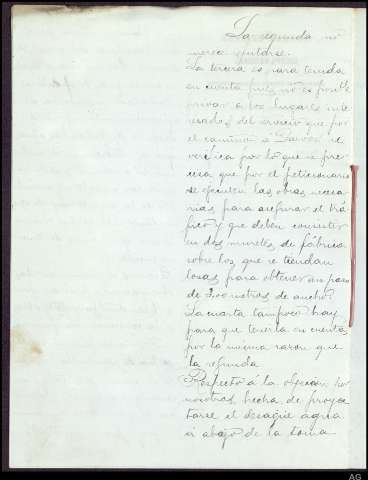 La segunda no
merece
La tercera es para tenida
en cuenta pues no es posible
privar a los lugares inte-
resados del servicio que por
el camino á se
verifica por lo que se pre-
cisa que por el peticionario
se ejecuten las obras necesa-
rias para asegurar el trá-
fico y que deben consistir
en dos muretes de fábrica
sobre los que se tiendan
losas para obtener un paso
de 3,00 metros de ancho.
La cuarta tampoco hay
para que tenerla en cuenta,
por la misma razon que
la segunda
Respecto á la objecion por
nosotros hecha de proyec-
tarse el desagüe agua
á abajo de la toma
AG